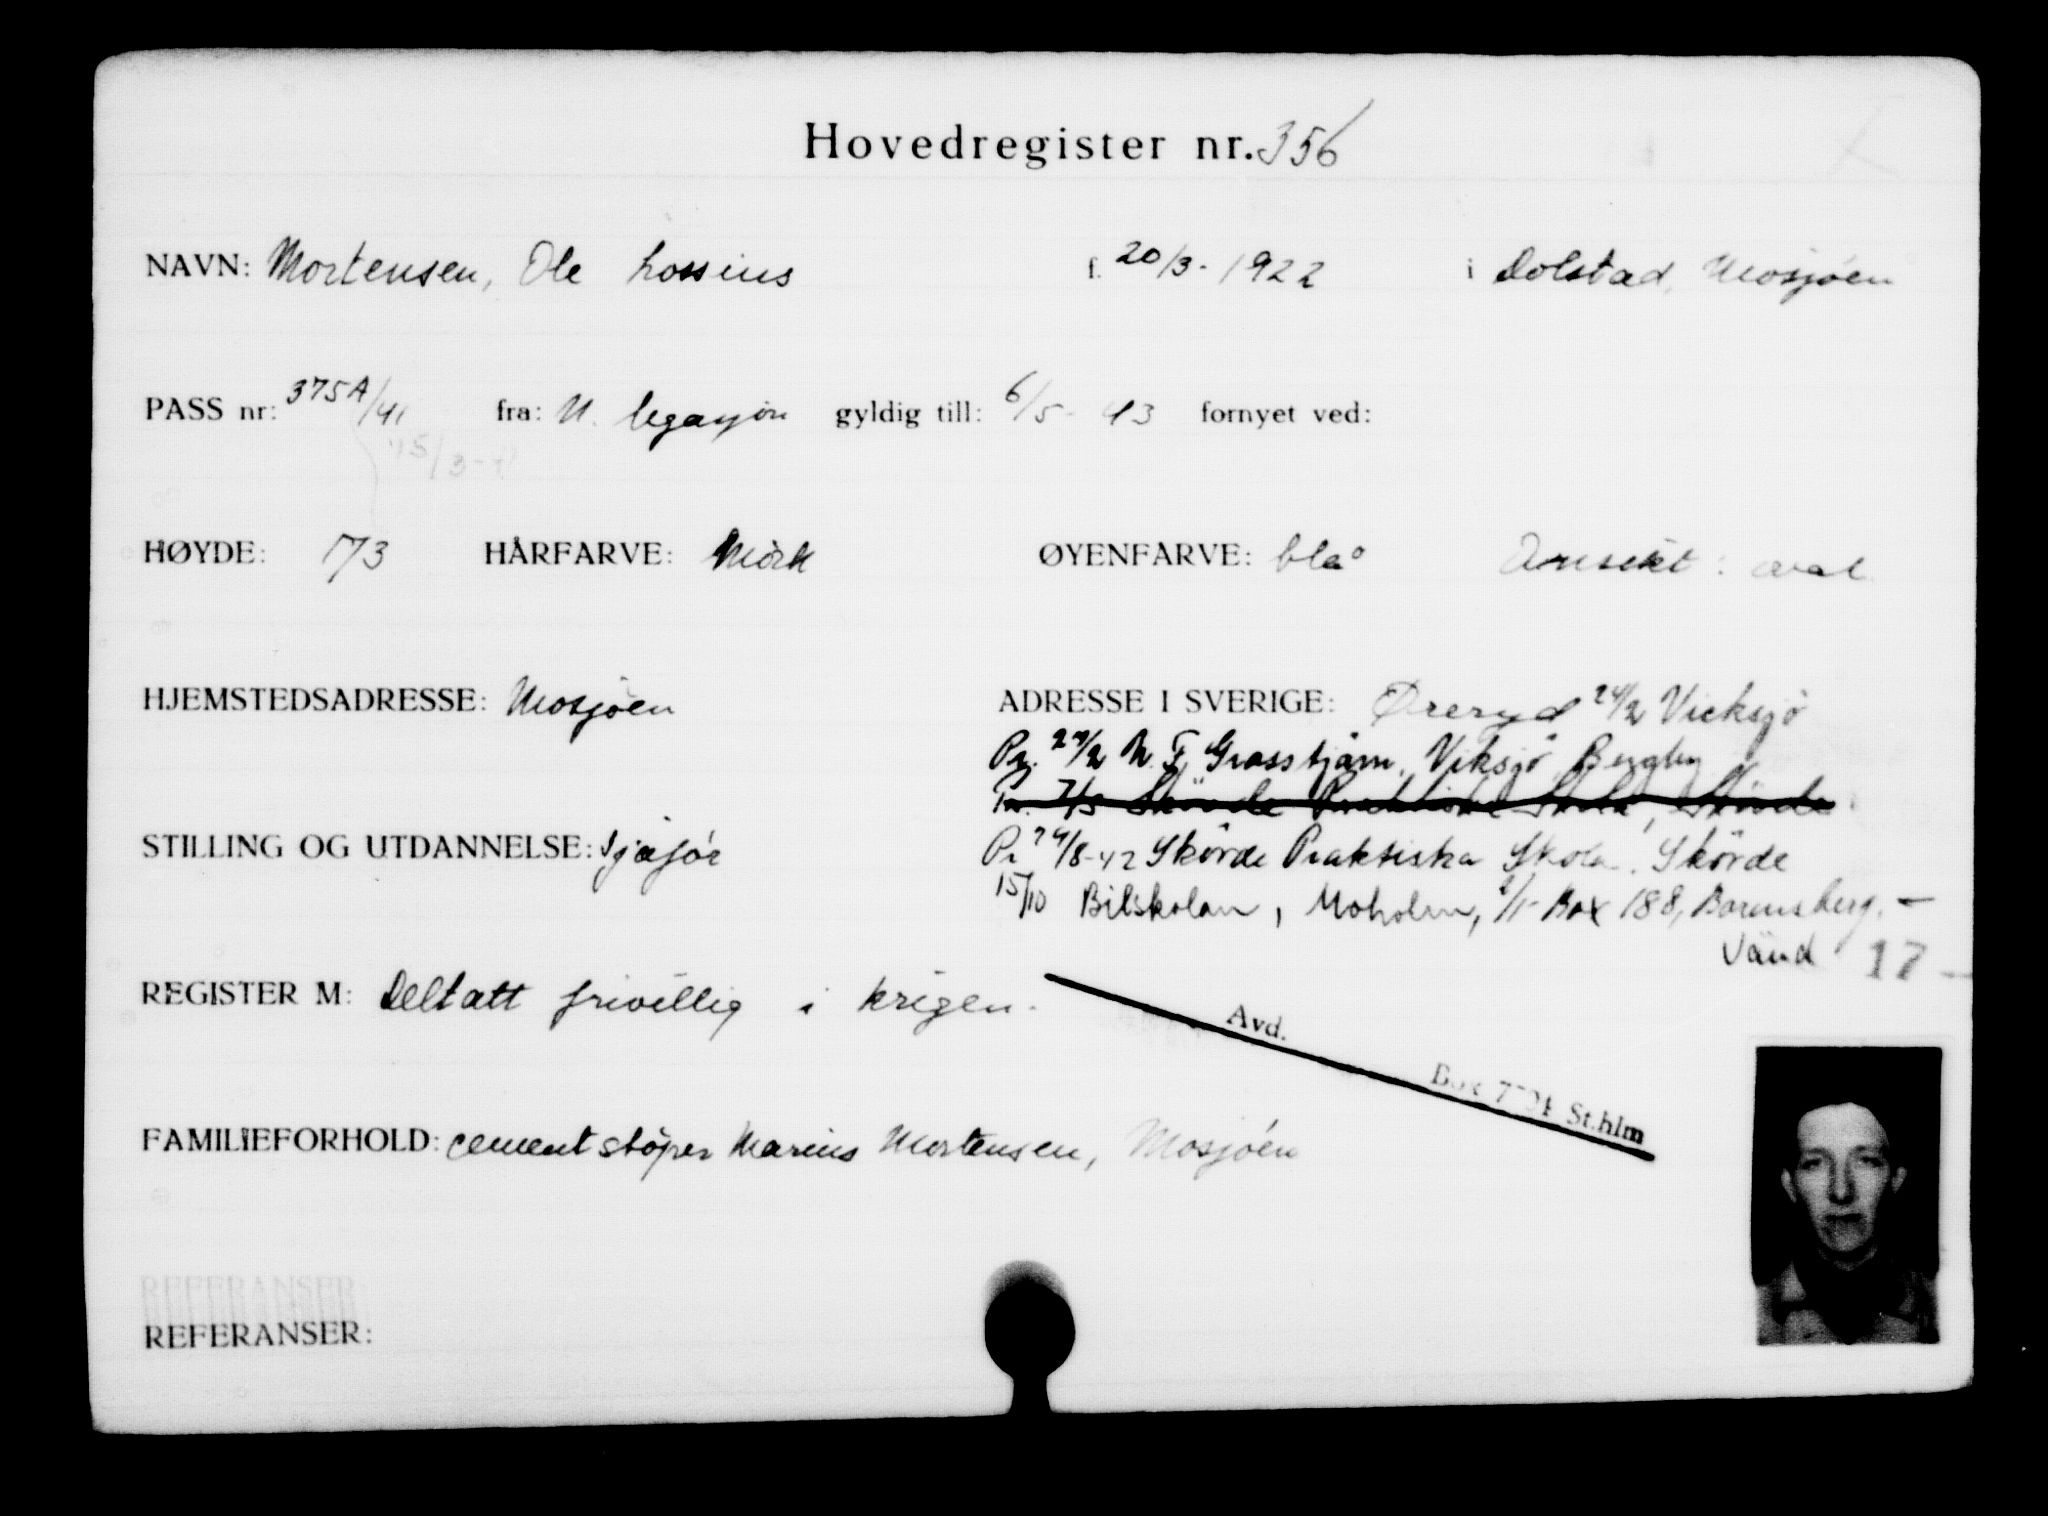 Hovedregister nr. 356
NAVN: Mortensen, Ole Lossius f. 20/3-1922 i Dolstad, Mosjøen
PASS nr: 375A/41 fra: N. legasjon gyldig till: 6/5-43 fornyet ved:
15/3-41
HØYDE: 173 HÅRFARVE: Mörk ØYENFARVE: blå Ansikt: oval
HJEMSTEDSADRESSE: Mosjøen ADRESSE I SVERIGE: Øreryd 24/2 Vicksjö
Pr. 24/2 N. F. Grasstjärn, Viksjö, Bergby
Pr. 7/5 Skövde Praktiska Skola, Skövde
STILLING OG UTDANNELSE: Sjåfør Pr 24/8-42 Skövde Praktiska Skola, Skövde
15/10 Bilskolan, Moholm, 1/1- Box 188, Borensberg. -
Vänd 17 -
REGISTER M: Deltatt frivillig i krigen.
Avd.
Box 7 St.hlm
FAMILIEFORHOLD: cementstøper Marius Mortensen, Mosjøen
REFERANSER
REFERANSER: